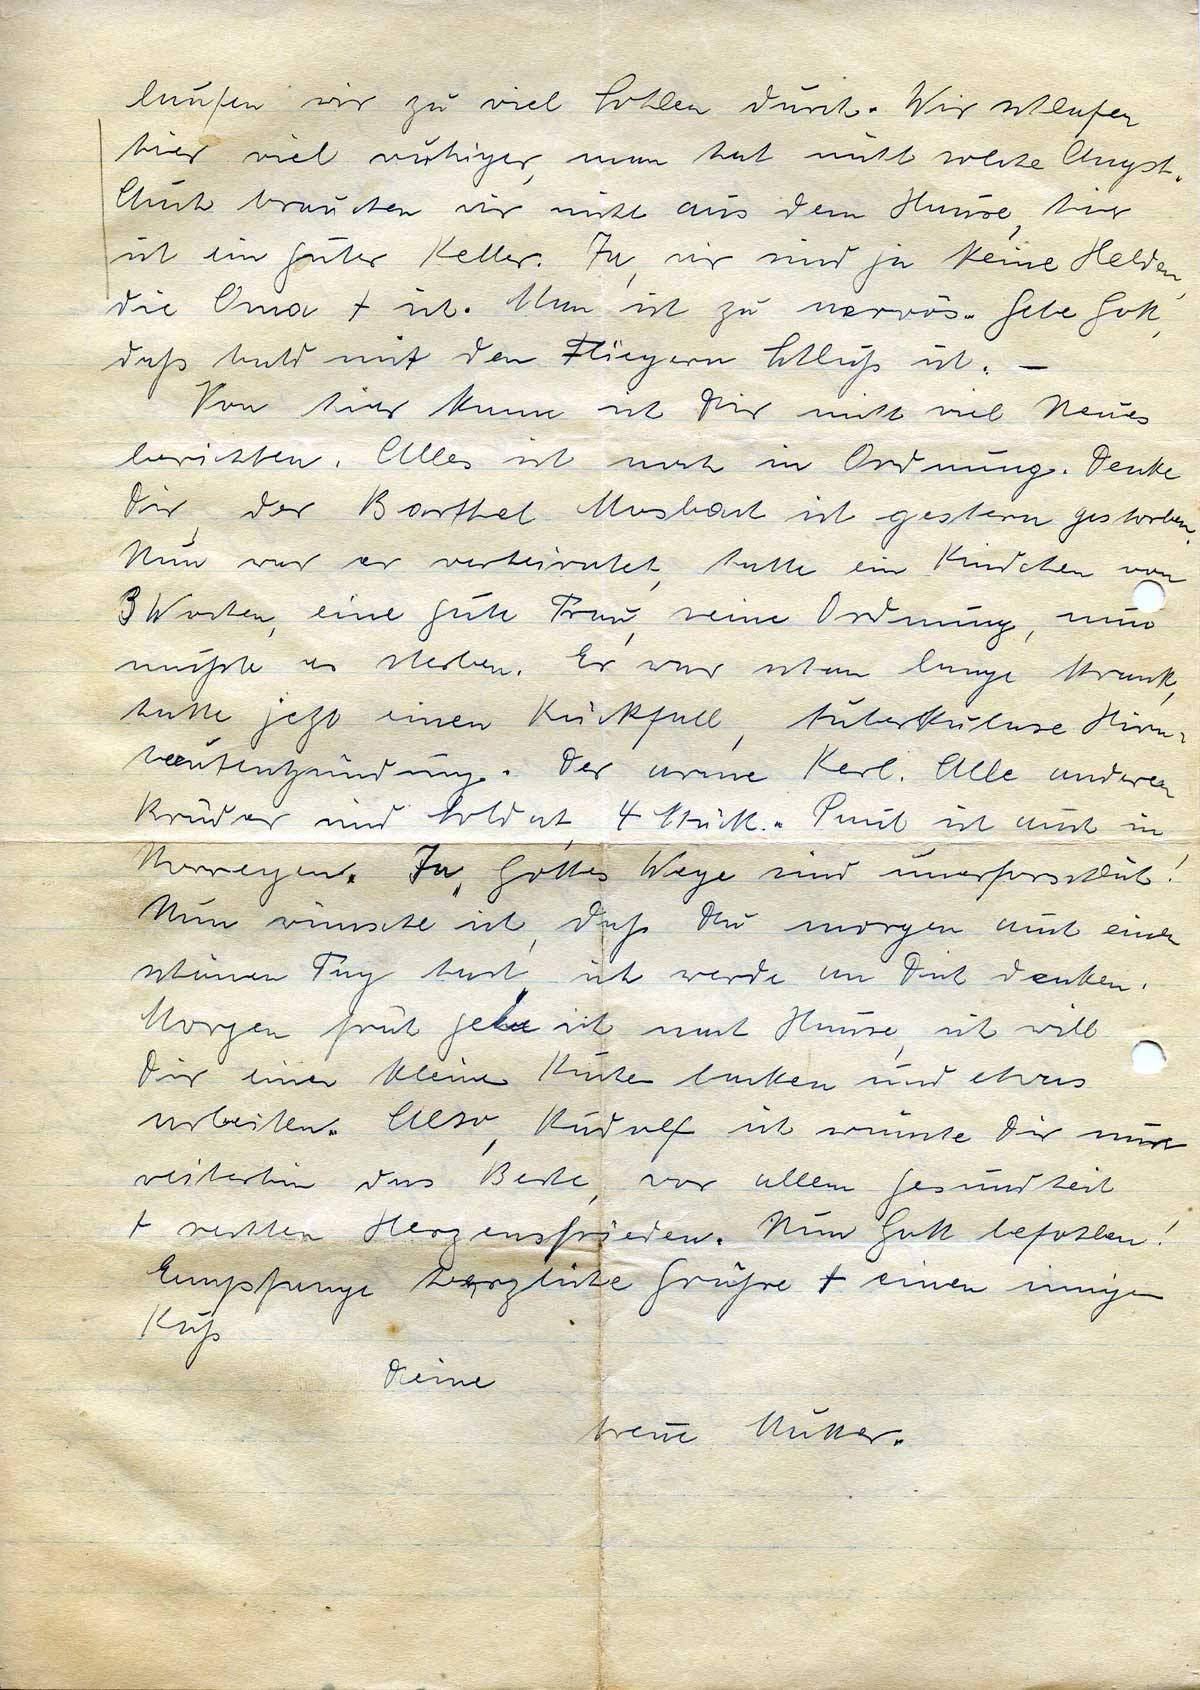 laufen wir zu viel Sohlen durch. Wir schlafen
hier viel ruhiger, man hat nicht solche Angst.
Auch brauchen wir nicht aus dem Hause, hier
ist ein guter Keller. Ja, wir sind ja keine Helden,
die Oma + ich. Man ist zu nervös. Gebe Gott,
daß bald mit den Fliegern Schluß ist. —
Von hier kann ich Dir nicht viel Neues
berichten. Alles ist noch in Ordnung. Denke
Dir, der Barthel Mosbach ist gestern gestorben.
Nun war er verheiratet, hatte ein Kindchen von
3 Wochen, eine gute Frau, seine Ordnung, nun
mußte er sterben. Er war schon lange krank,
hatte jetzt einen Rückfall, tuberkulose Hirn-
hautentzündung. Der arme Kerl. Alle anderen
Brüder sind Soldat, 4 Stück. Paul ist auch in
Norwegen. Ja, Gottes Wege sind unerforschlich!
Nun wünsche ich, daß Du morgen auch einen
schönen Tag hast, ich werde an Dich denken.
Morgen früh gehe ich nach Hause, ich will
Dir einen kleinen Kuchen backen und etwas
arbeiten. Also, Rudolf ich wünsche Dir nun
weiterhin das Beste, vor allem Gesundheit
+ rechten Herzensfrieden. Nun Gott befohlen!
Empfange herzliche Grüße + einen innigen
Kuß
Deine
treue Mutter.